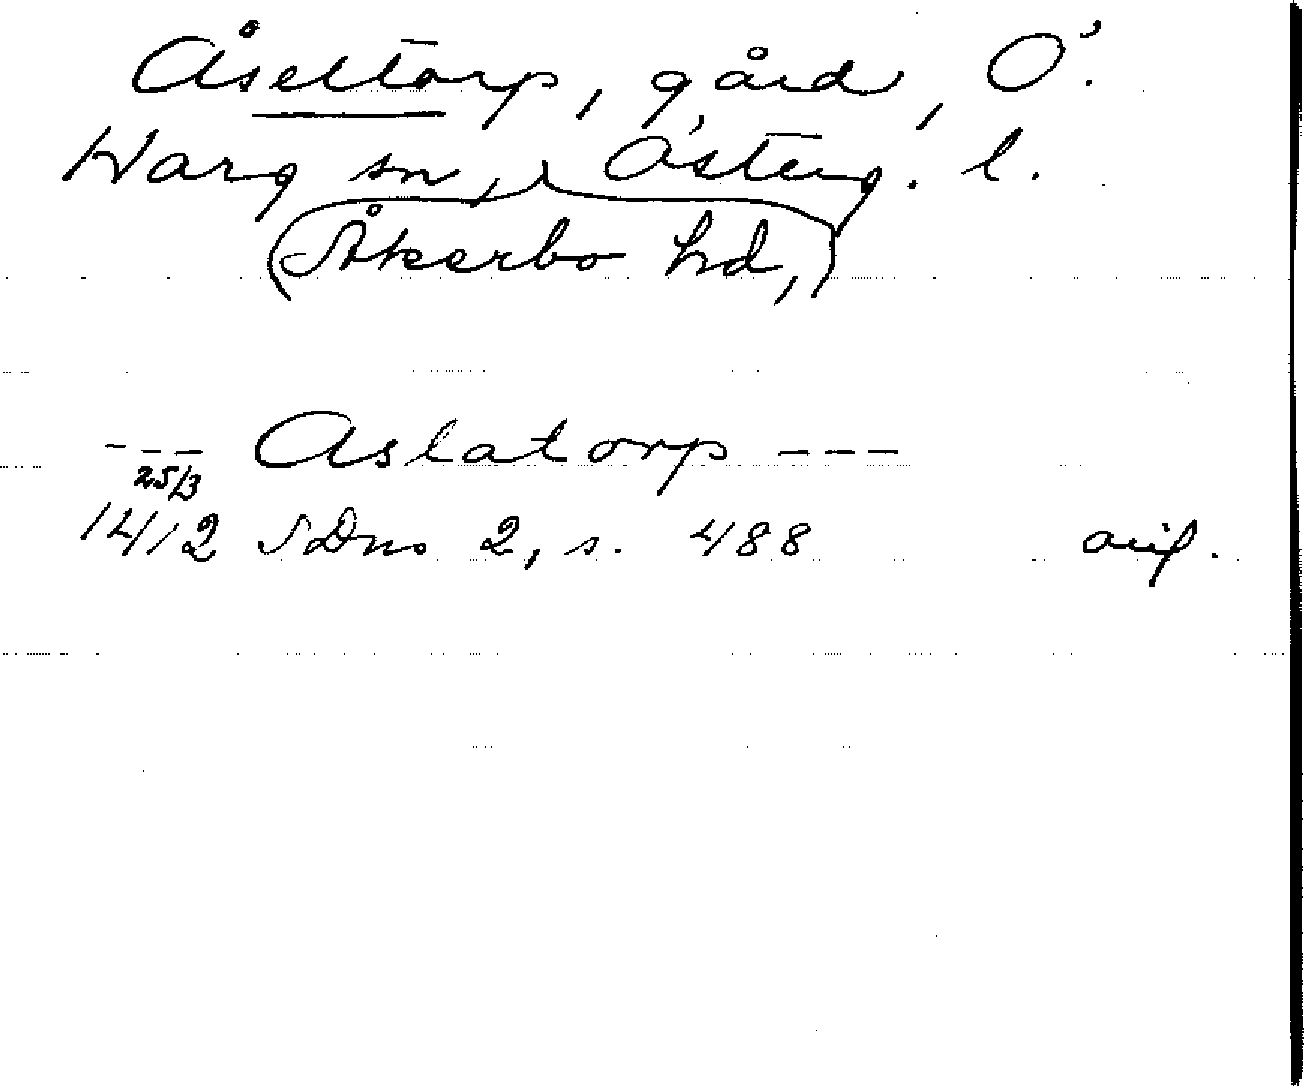 Åseltorp, gård, Ö.
Harg sn, Österg. l.
(Åkerbo hd,)
--- Aslatorp ---
25/3
1412 SDns 2, s. 488